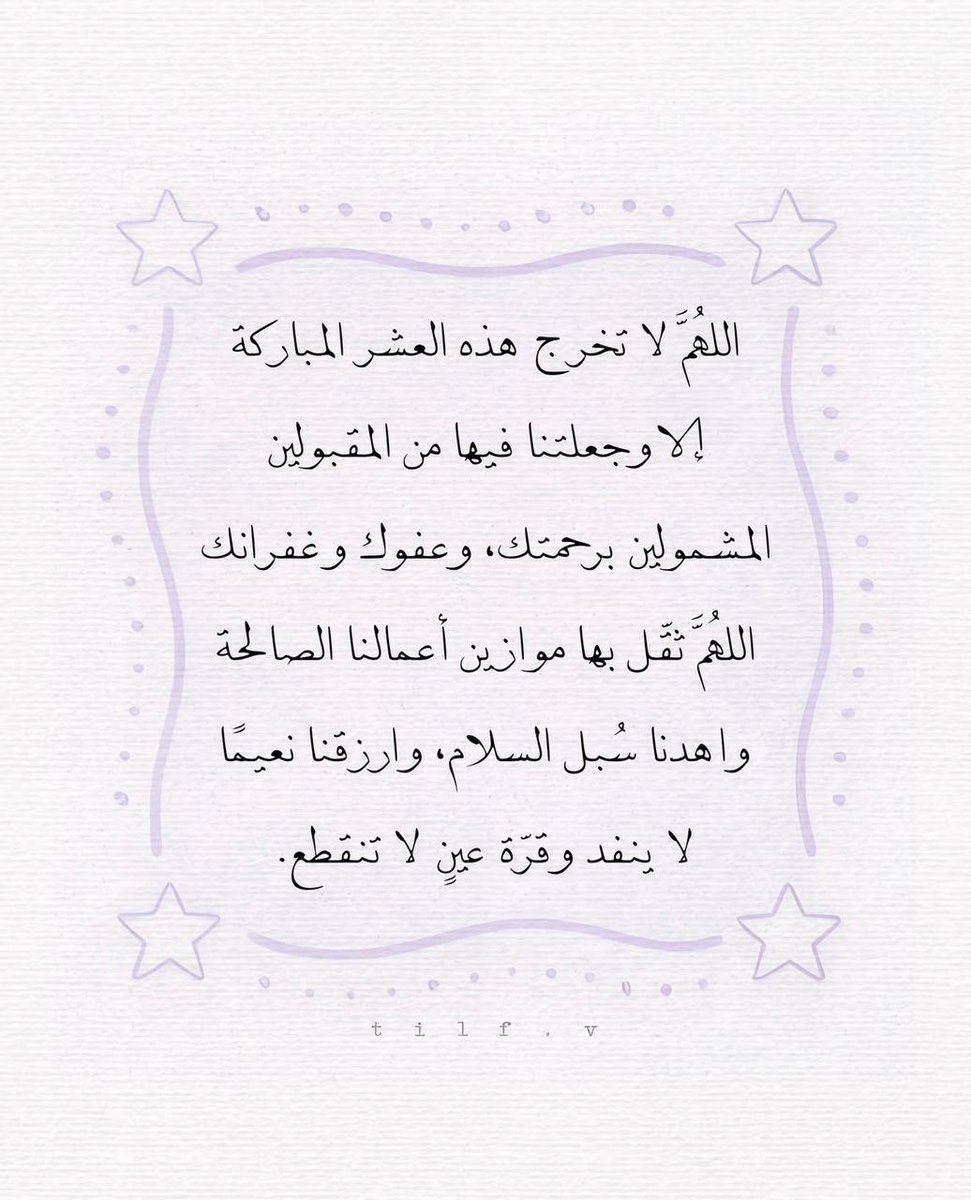 اللهُمَّ لا تخرج هذه العشر المباركة
إلا وجعلتنا فيها من المقبولين
المشمولين برحمتك، وعفوك وغفرانك
اللهُمَّ ثقّل بها موازين أعمالنا الصالحة
واهدنا سُبل السلام، وارزقنا نعيمًا
لا ينفد وقرّة عينٍ لا تنقطع.
tilf.v